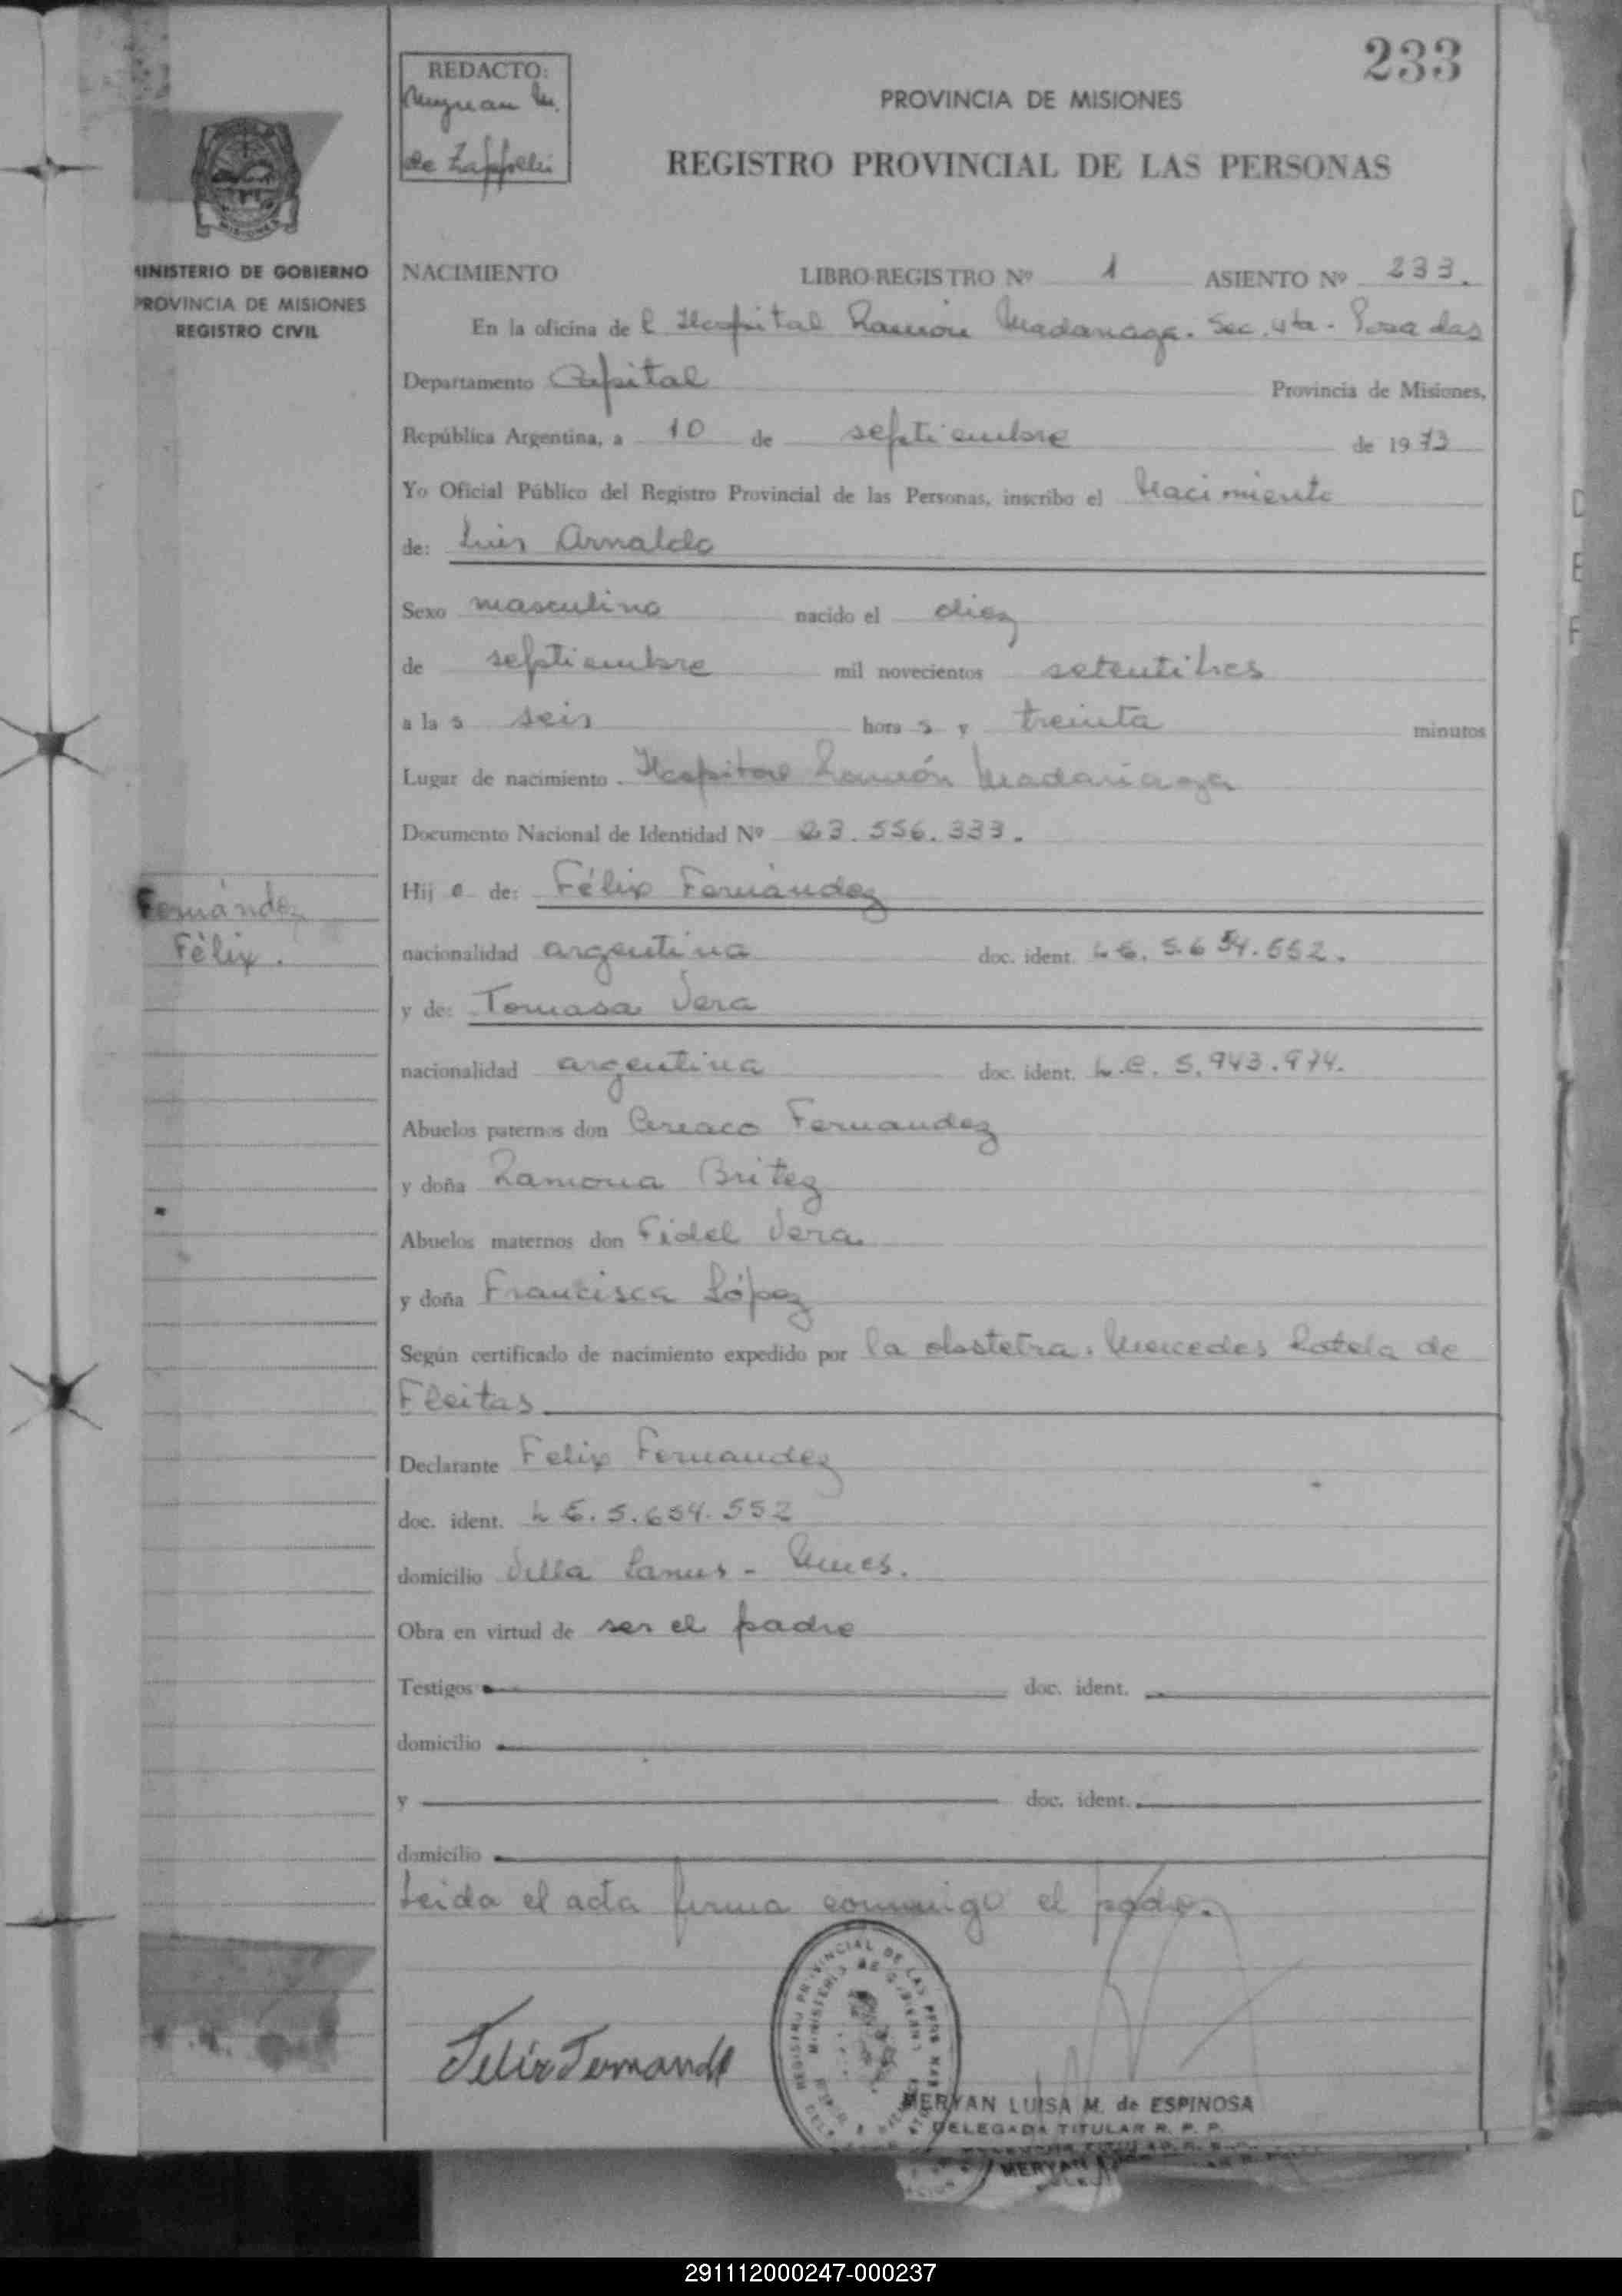 233
REDACTO:
de Zappelli
PROVINCIA DE MISIONES
REGISTRO PROVINCIAL DE LAS PERSONAS
MISIONES
MINISTERIO DE GOBIERNO
PROVINCIA DE MISIONES
REGISTRO CIVIL
NACIMIENTO LIBRO-REGISTRO Nº 1 ASIENTO Nº 233.
En la oficina de l Hospital Ramón Madariaga. Sec. 4ta. Posadas
Departamento Capital Provincia de Misiones,
República Argentina, a 10 de septiembre de 1973
Yo Oficial Público del Registro Provincial de las Personas, inscribo el Nacimiento
de: Luis Arnaldo
Sexo masculino nacido el diez
de septiembre mil novecientos setentitres
a la s seis hora s y treinta minutos
Lugar de nacimiento Hospital Ramón Madariaga
Documento Nacional de Identidad Nº 23.556.333.
Hij o de: Félix Fernández
Fernández
Félix.
nacionalidad argentina doc. ident. L E. 5.654.552.
y de: Tomasa Vera
nacionalidad argentina doc. ident. L.C. 5.943.974.
Abuelos paternos don Ciriaco Fernandez
y doña Ramona Britez
Abuelos maternos don Fidel Vera
y doña Francisca López
Según certificado de nacimiento expedido por la obstetra. Mercedes Rotela de
Fleitas
Declarante Felix Fernandez
doc. ident. L E. 5.654.552
domicilio Villa Lanus - Mnes.
Obra en virtud de ser el padre
Testigos doc. ident.
domicilio
y doc. ident.
domicilio
Leida el acta firma conmigo el padre.
Felix Fernande
REGISTRO PROVINCIAL DE LAS PERSONAS
MINISTERIO DE GOBIERNO
MERYAN LUISA M. de ESPINOSA
DELEGADA TITULAR R. P. P.
MERYAN
291112000247-000237